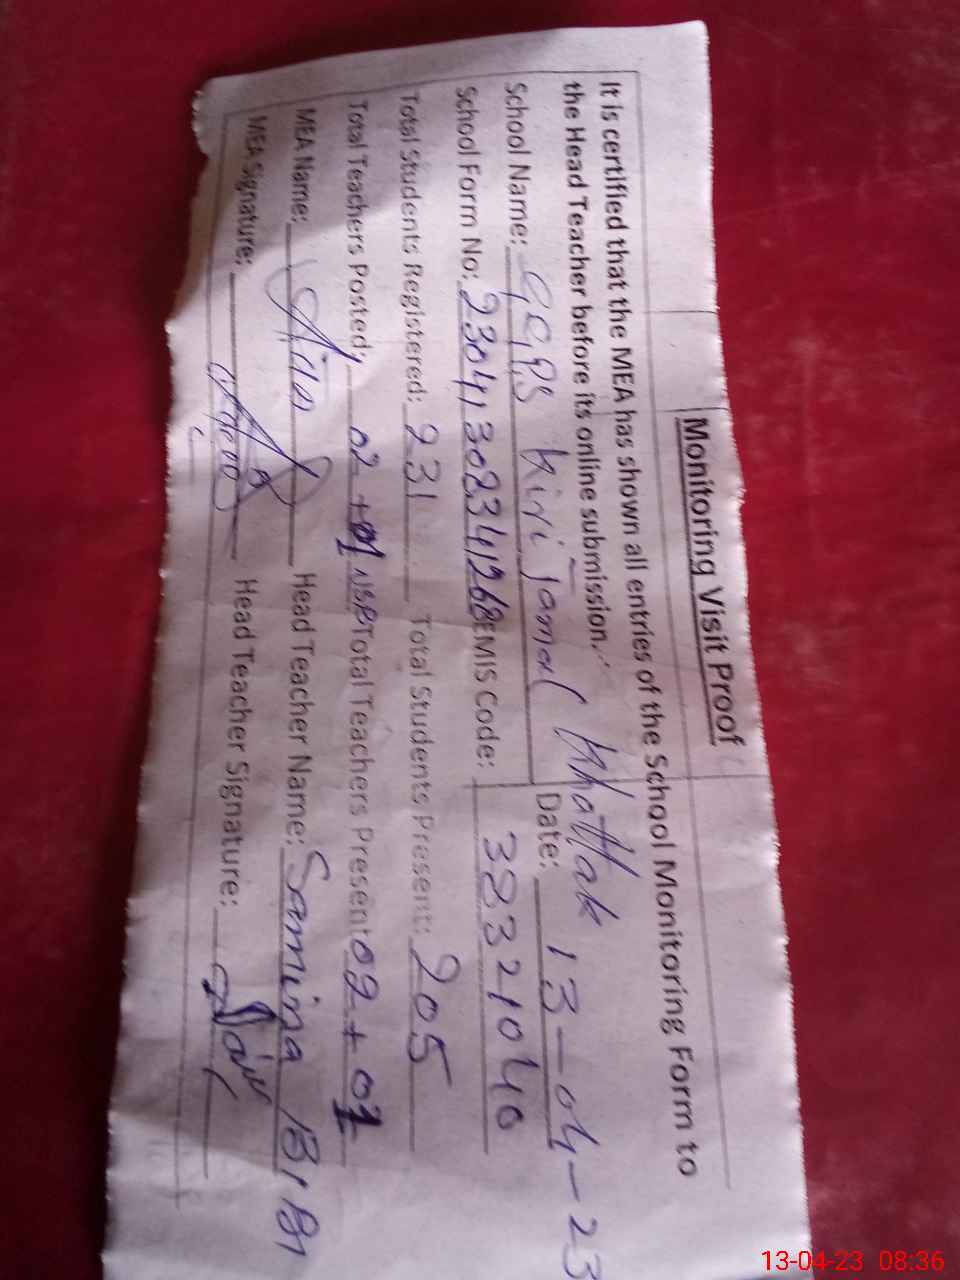 Monitoring Visit Proof
It is certified that the MEA has shown all entries of the School Monitoring Form to
the Head Teacher before its online submission.
School Name: GGPS kiri Jamal Khattak Date: 13-04-23
School Form No: EMIS Code: 38321040
Total Students Registered: 231 Total Students Present: 205
Total Teachers Posted: 02 + 01 Total Teachers Present 02 + 01
MEA Name: Head Teacher Name: Samina BiBi
MEA Signature: Head Teacher Signature:
13-04-23 08:36